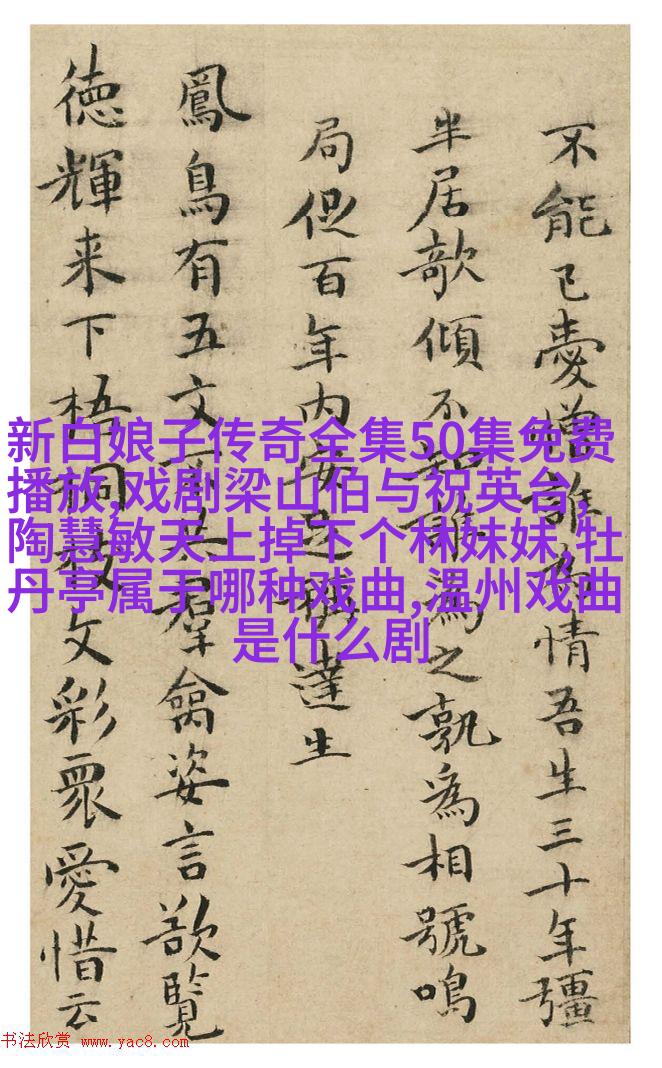 新白娘子传奇全集50集免费
播放,戏剧梁山伯与祝英台,
陶慧敏天上掉下个林妹妹,牡
丹亭属于哪种戏曲,温州戏曲
是什么剧
不能已愛憎誰為情吾生三十年彊
半居欹傾不知誰為之孰為相號鳴
局促百年内安達生
鳳鳥有五文羣禽姿言欲覽
德輝来下梧桐枝文彩眾愛惜云
书法欣赏 www.yac8.com